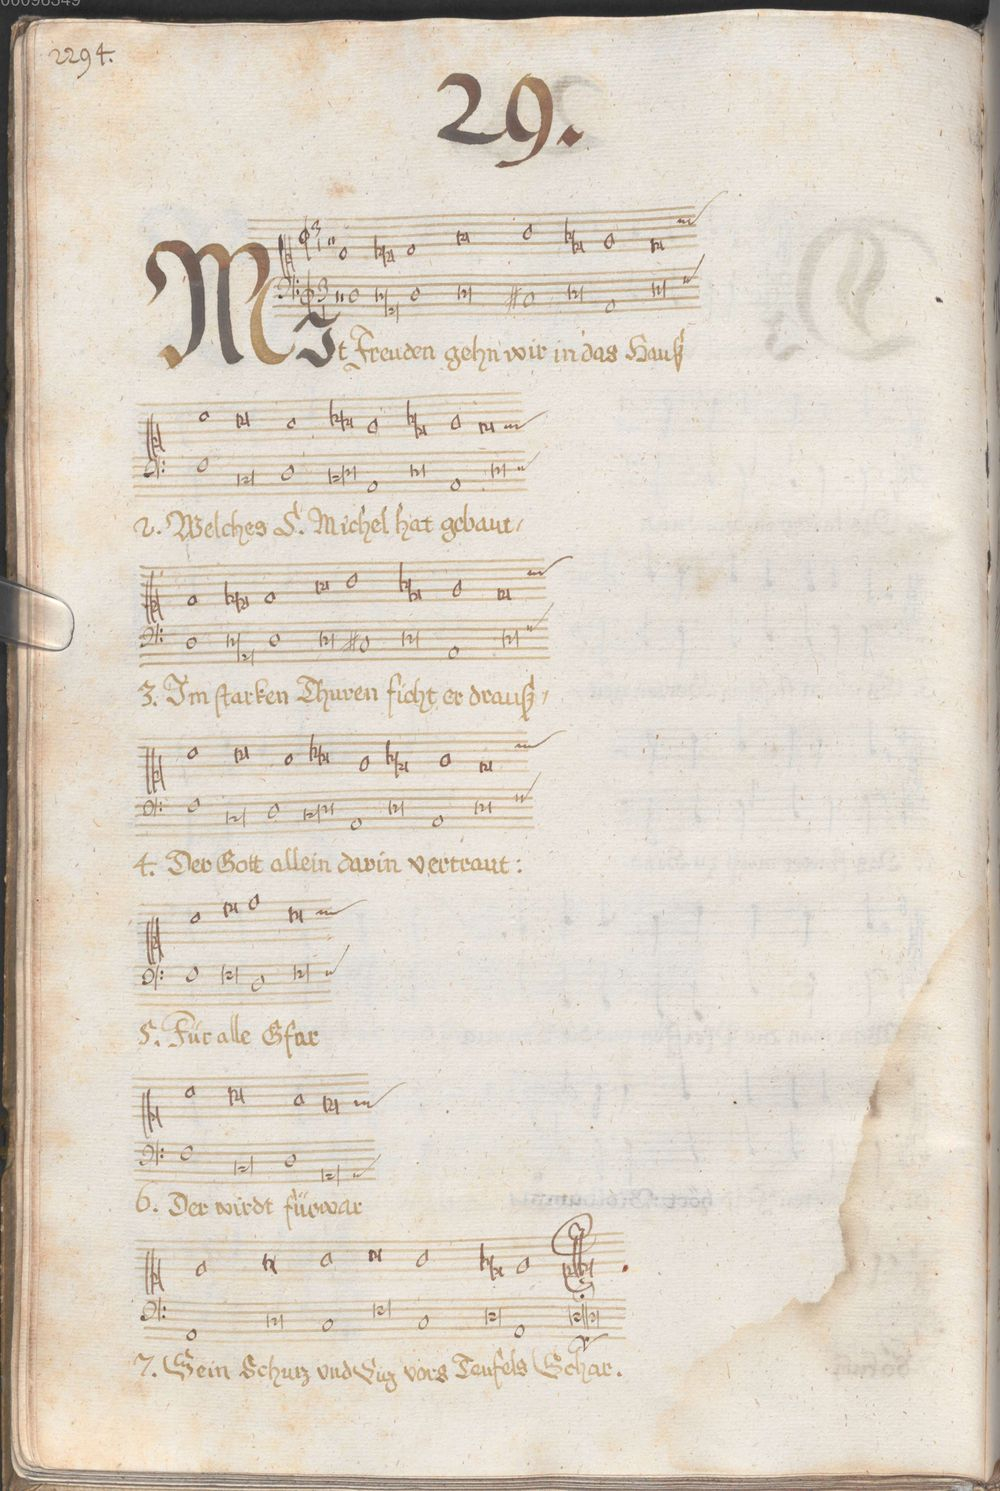 00098349
2294.
29.
MIt Freuden gehn wir in das Hauß
2. Welches S. Michel hat gebaut,
3. Im starken Thuren sicht er drauß,
4. Der Gott allein darin vertraut:
5. Für alle Gfar
6. Der wirdt fürwar
7. Sein Schutz vnd Sig vors Teufels Schar.